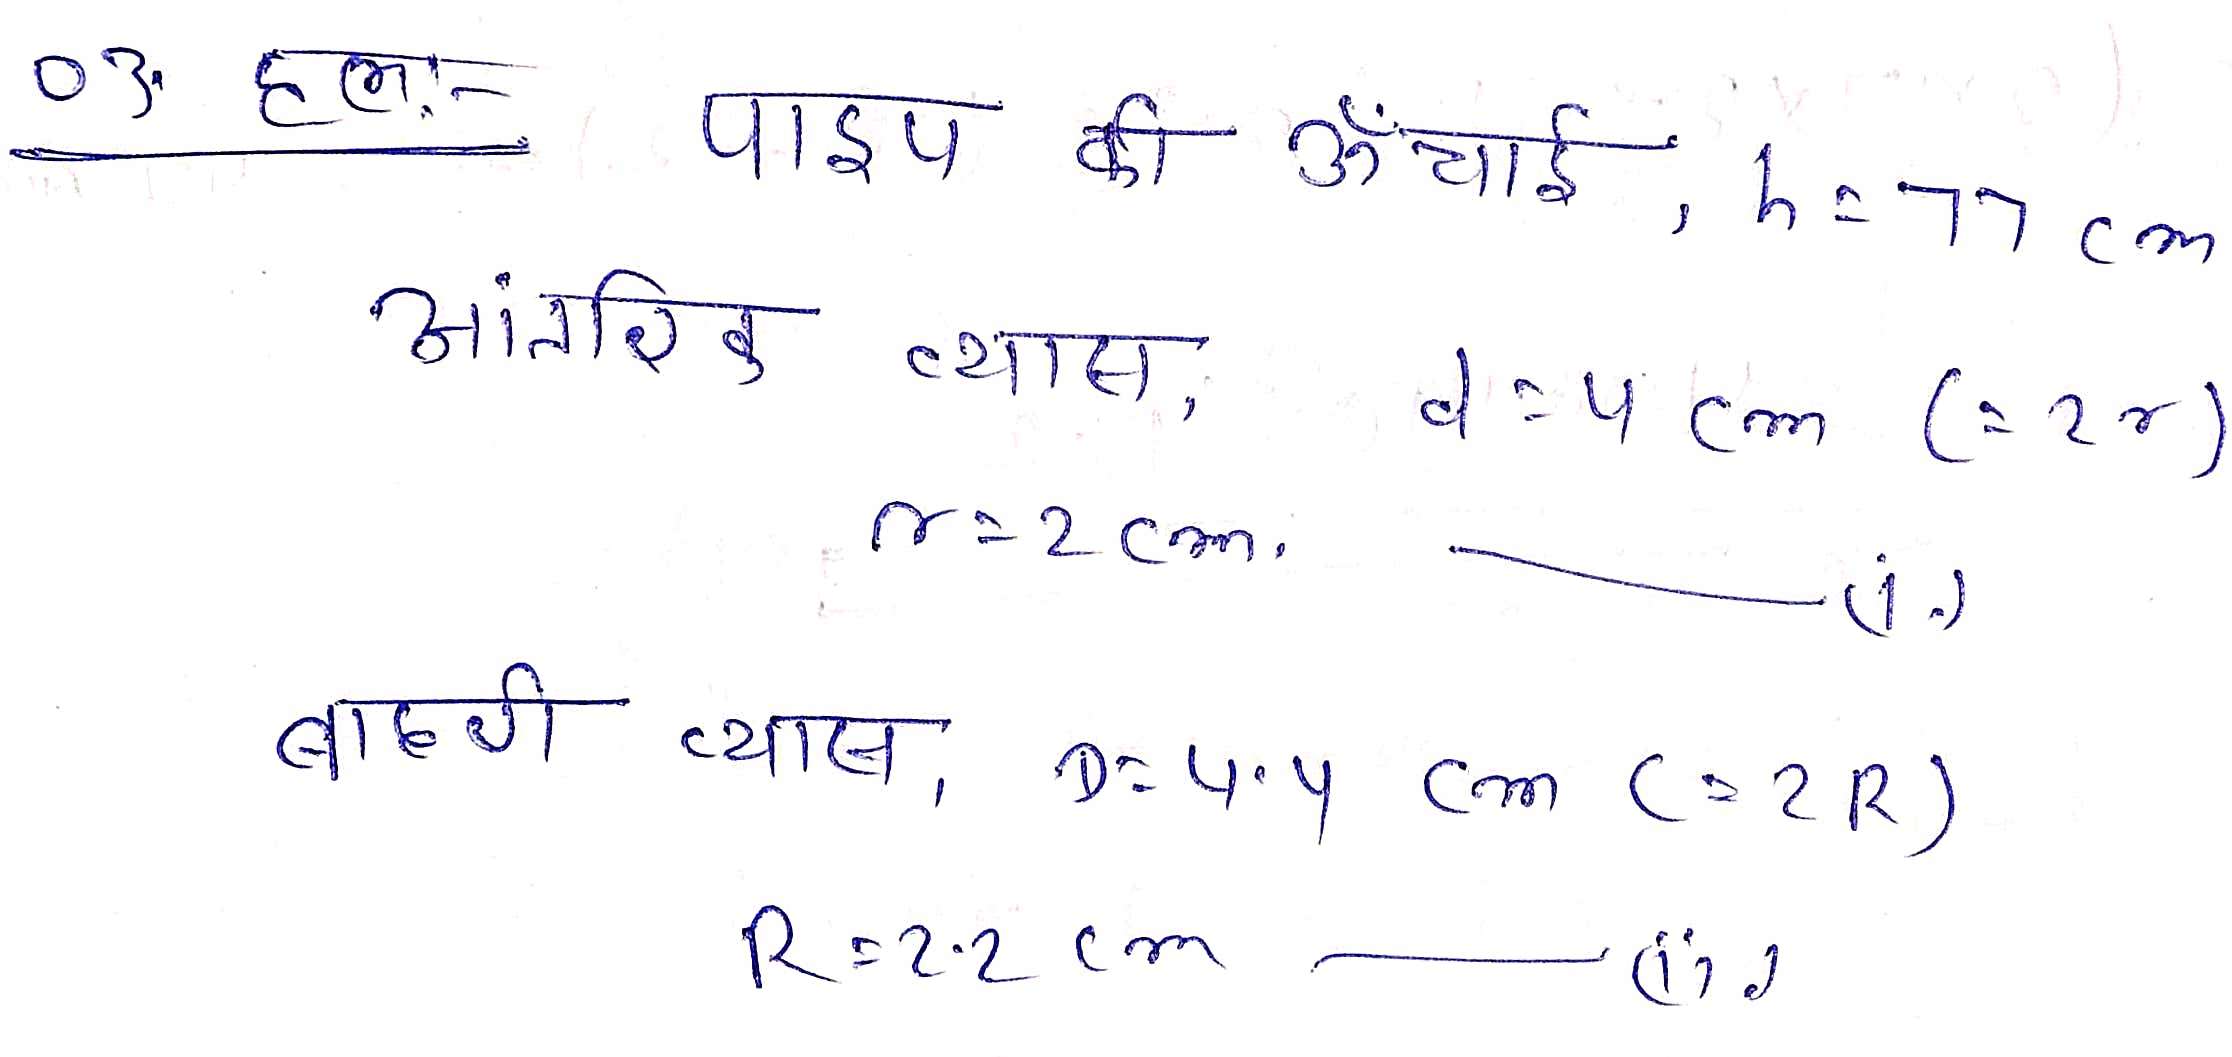 03. हल:-
पाइप की ऊँचाई, h = 77 cm
आंतरिक व्यास, d = 4 cm (= 2r)
r = 2 cm. —— (i.)
बाहरी व्यास, D = 4.4 cm (= 2R)
R = 2.2 cm —— (ii.)